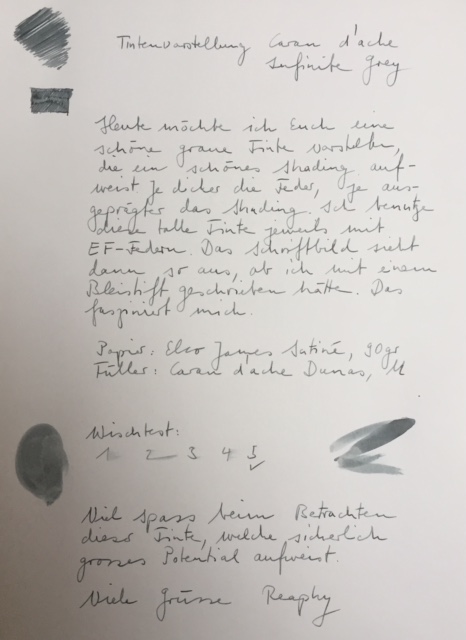 Tintenvorstellung Caran d'ache
Infinite Grey
Heute möchte ich Euch eine
schöne graue Tinte vorstellen,
die ein schönes Shading auf-
weist. Je dicker die Feder, je aus-
geprägter das Shading. Ich benutze
diese tolle Tinte jeweils mit
EF-Federn. Das Schriftbild sieht
dann so aus, ob ich mit einem
Bleistift geschrieben hätte. Das
fasziniert mich.
Papier: Elco James Satiné, 90gr
Füller: Caran d'ache Dunas, M
Wischtest:
1 2 3 4 5
Viel Spass beim Betrachten
dieser Tinte, welche sicherlich
grosses Potential aufweist.
Viele Grüsse Reaphy